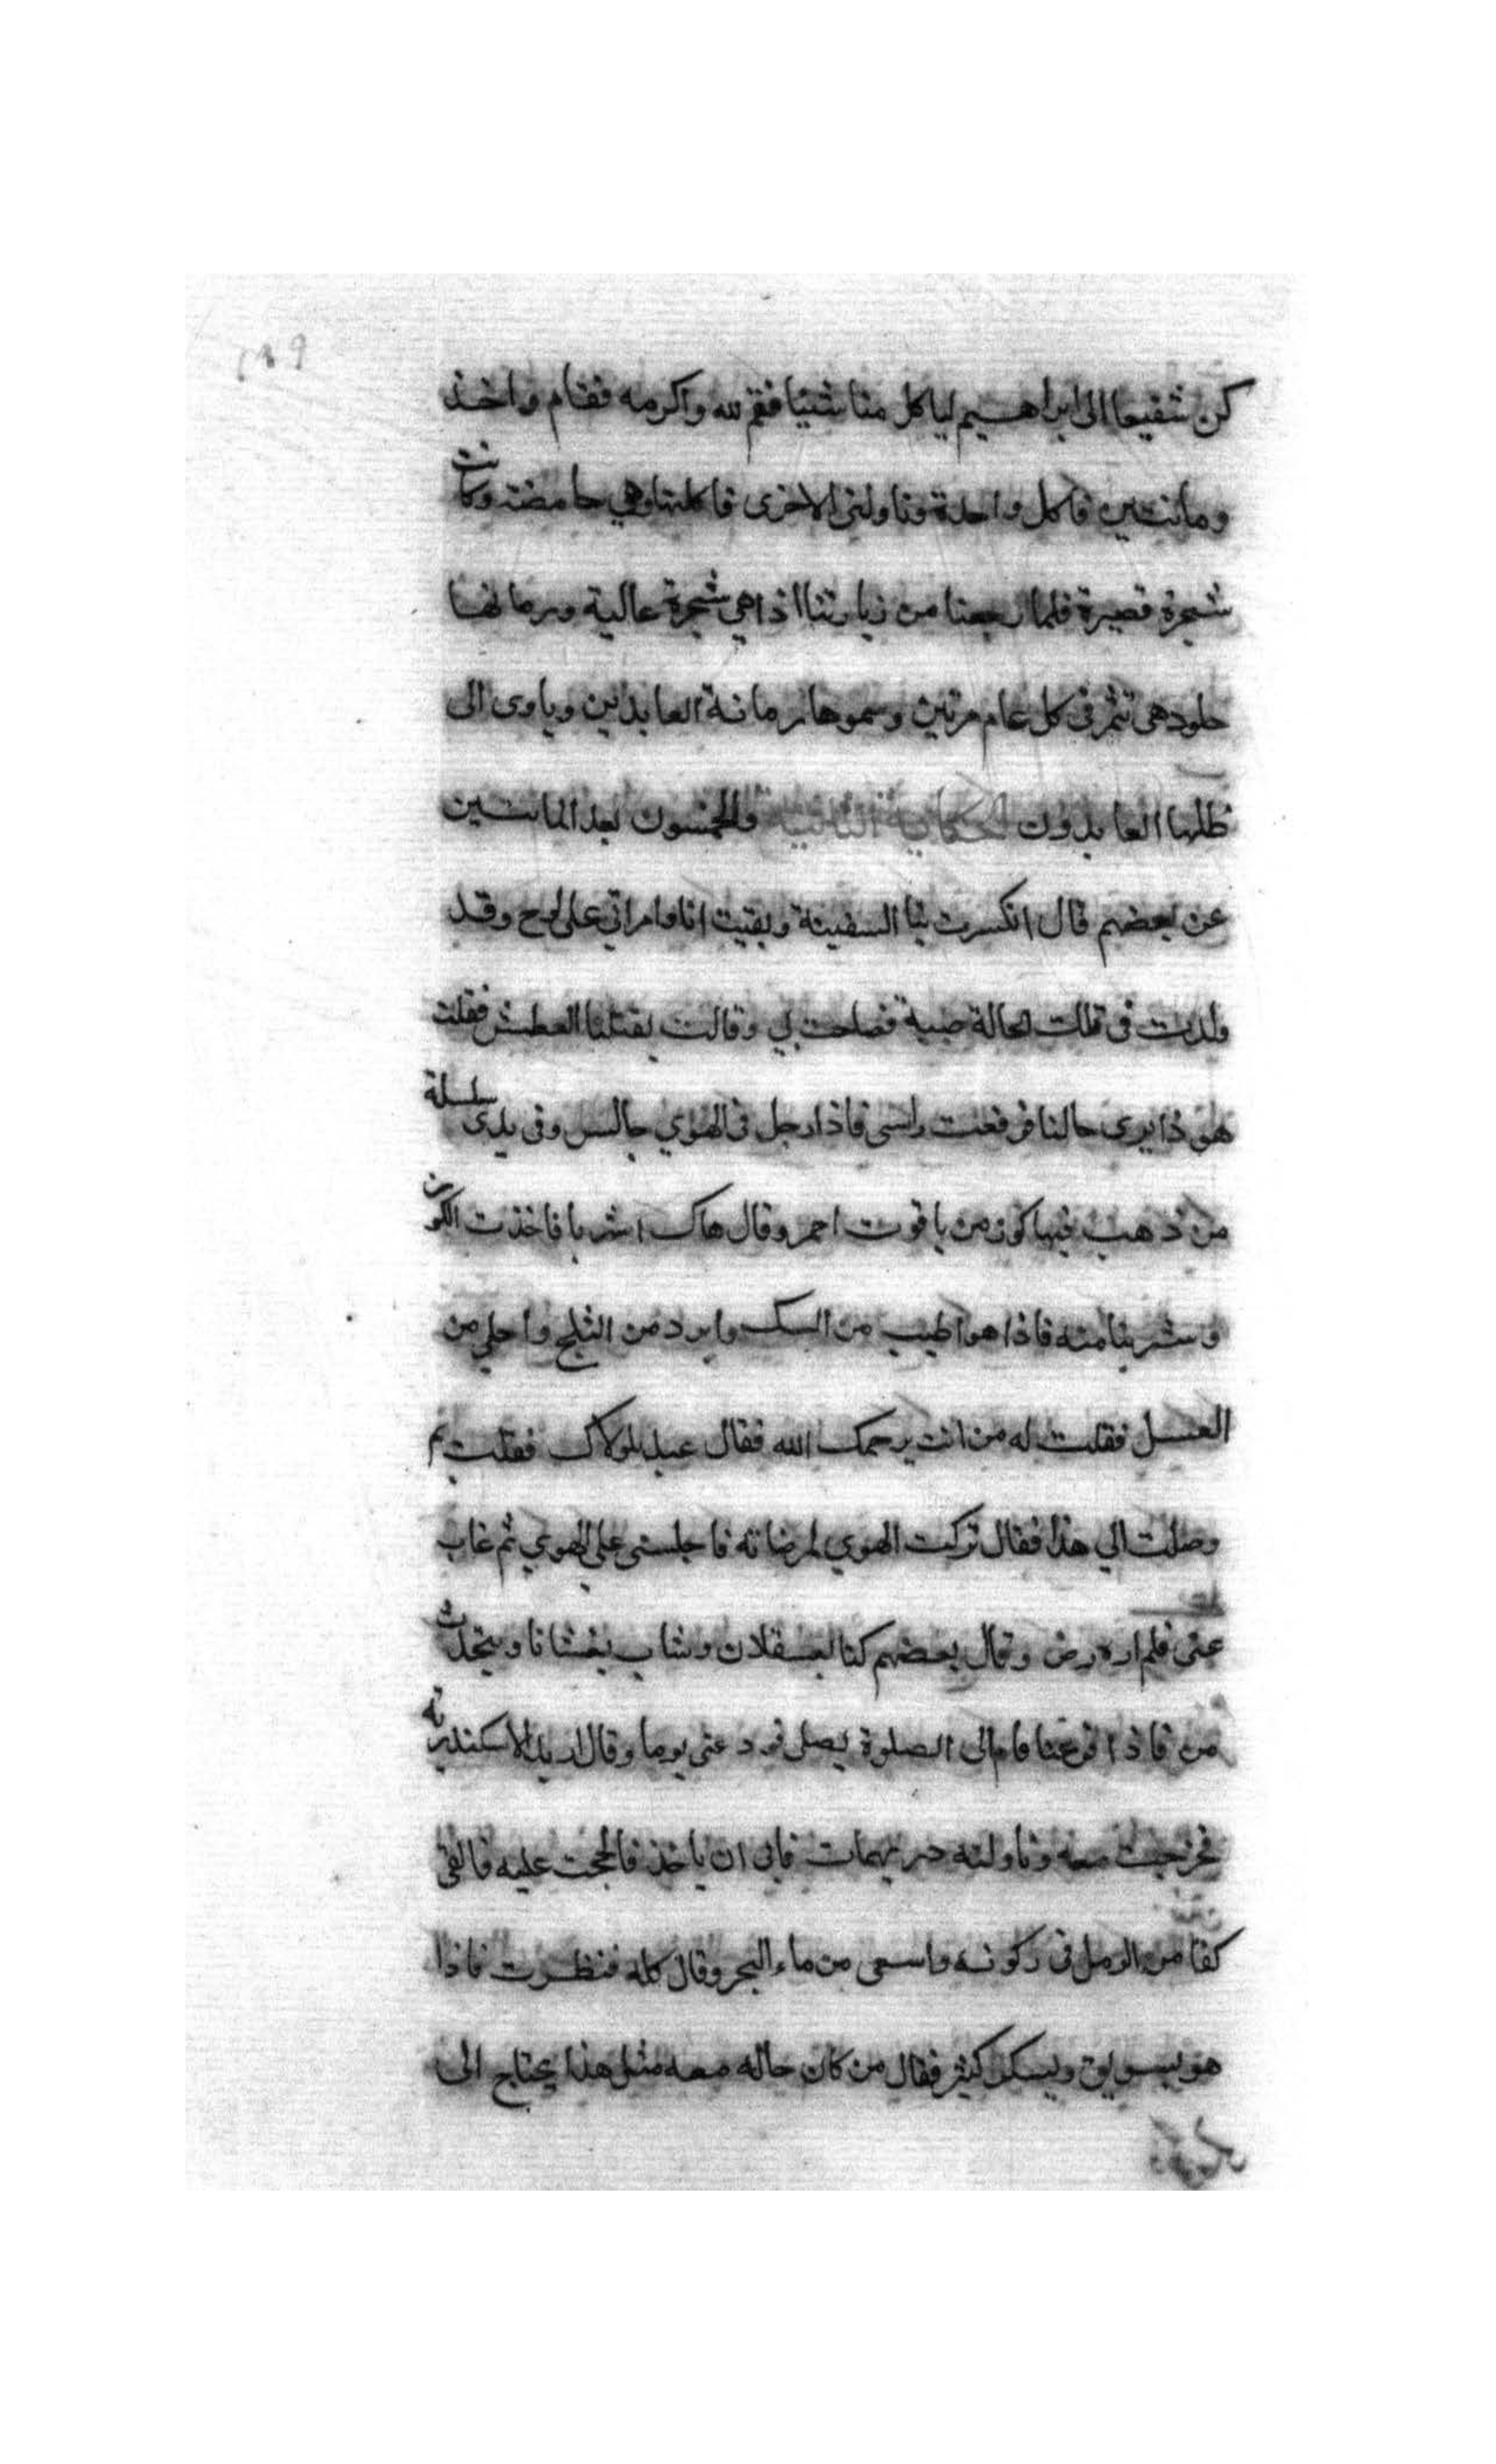 ١٨٩
كن شفيعا الى ابراهيم لياكل منا شيئا فقم لله واكرمه فقام واخذ
ومانتين فاكل واحدة وناولنى الاخرى فاكلتها وهي حامضة وكانت
شجرة قصيرة فلما رجعنا من زيارتنا اذا هي شجرة عالية ورمانها
حلو وهى تثمر فى كل عام مرتين وسموها رمانة العابدين وياوى الى
ظلها العابدون الحكاية الثانية والخمسون بعد المانتين
عن بعضهم قال انكسرت بنا السفينة وبقيت انا وامراتي على لوح وقد
ولدت فى تلك الحالة صبية فصاحت بي وقالت يقتلنا العطش فقلت
هو ذا يرى حالنا فرفعت راسى فاذا رجل فى الهوي جالس وفى يدى سلسلة
من ذهب فيها كوز من ياقوت احمر وقال هاك اشربا فاخذت الكوز
وشربنا منه فاذا هو اطيب من السك وابرد من الثلج واحلي من
العسل فقلت له من انت يرحمك الله فقال عبد لمولاك فقلت بم
وصلت الي هذا فقال تركت الهوي لمرضاته فاجلسنى علي الهوي ثم غاب
عنى فلم اره رض وقال بعضهم كنا بعسقلان وشاب يغشانا ويتحدث
من فاذا فرغنا قام الى الصلوة يصلى فودعنى يوما وقال اريد الاسكندرية
فخرجت معه وناولته دريهمات فابى ان ياخذ فالححت عليه فالقى
كفا من الرمل فى ركوته واسعى من ماء البحر وقال كله فنظرت فاذا
هو بسويق وبسكر كثير فقال من كان حاله معه مثل هذا يحتاج الى